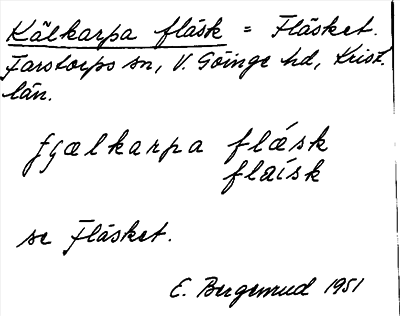 Kälkarpa fläsk = Fläsket.
Farstorps sn, V. Göinge hd, Krist.
län.
fçælkarpa flǽsk
flaísk
se Fläsket.
E. Bergemud 1951